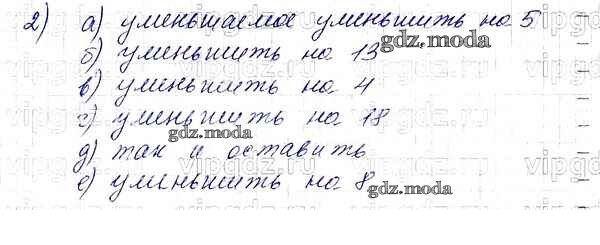 2) а) уменьшаемое уменьшить на 5
б) уменьшить на 13
в) уменьшить на 4
г) уменьшить на 18
д) так и оставить
е) уменьшить на 8
gdz.moda
gdz.moda
gdz.moda